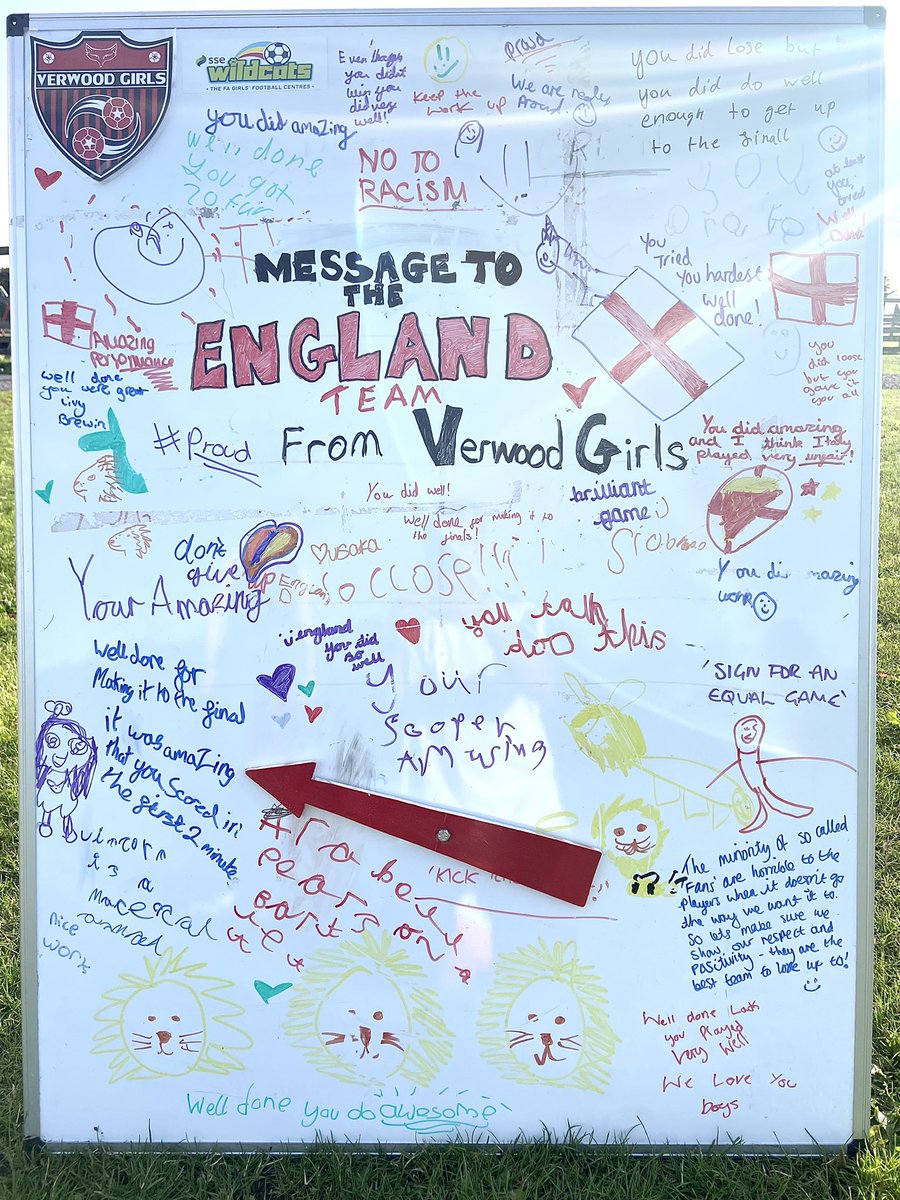 VERWOOD GIRLS
sse
wildcats
THE FA GIRLS' FOOTBALL CENTRES
Even though
you didn't
win you
did very
well!
Keep the
work up
proud
We are really
Proud
you did lose but
you did do well
enough to get up
to the finall
you did amaZing
well done
You got
so far
NO TO
RACISM
at least
you
tried
Well
Done
MESSAGE TO
THE
ENGLAND
TEAM
From Verwood Girls
You
Tried
You hardest
well
done!
you
did loose
but you
gave it
you all
Amazing
Performance
well done
you were great
Livy
Brewin
#Proud
You did amazing
and I think Italy
played very unfair!
You did well!
Well done for making it to
the finals!
brilliant
game
don't
give
up
usaka
England
CLOSE!!!
Your Amazing
You did mazing
work
england
you did
so
well
you
doo this
Well done for
Making it to the final
it was amaZing
that you Scored in
the first 2 minute
your
Sooper
AMusing
'SIGN FOR AN
EQUAL GAME'
is
a
nice
work
'KICK
The minority of so called
'Fans' are horrible to the
players when it doesn't go
the way we want it to.
So lets make sure we
show our respect and
positivity - they are the
best team to look up to!
Well done Lads
you played
Very Well
We Love You
boys
Well done you do awesome